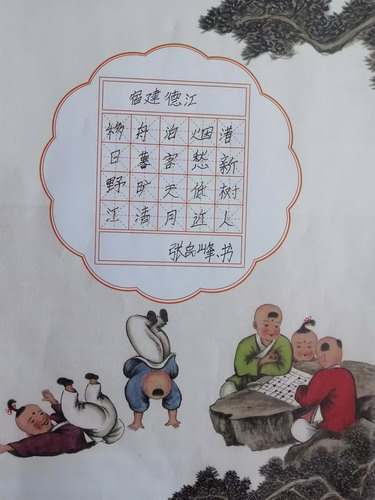 宿建德江
移舟泊烟渚
日暮客愁新
野旷天低树
江清月近人
张良峰书